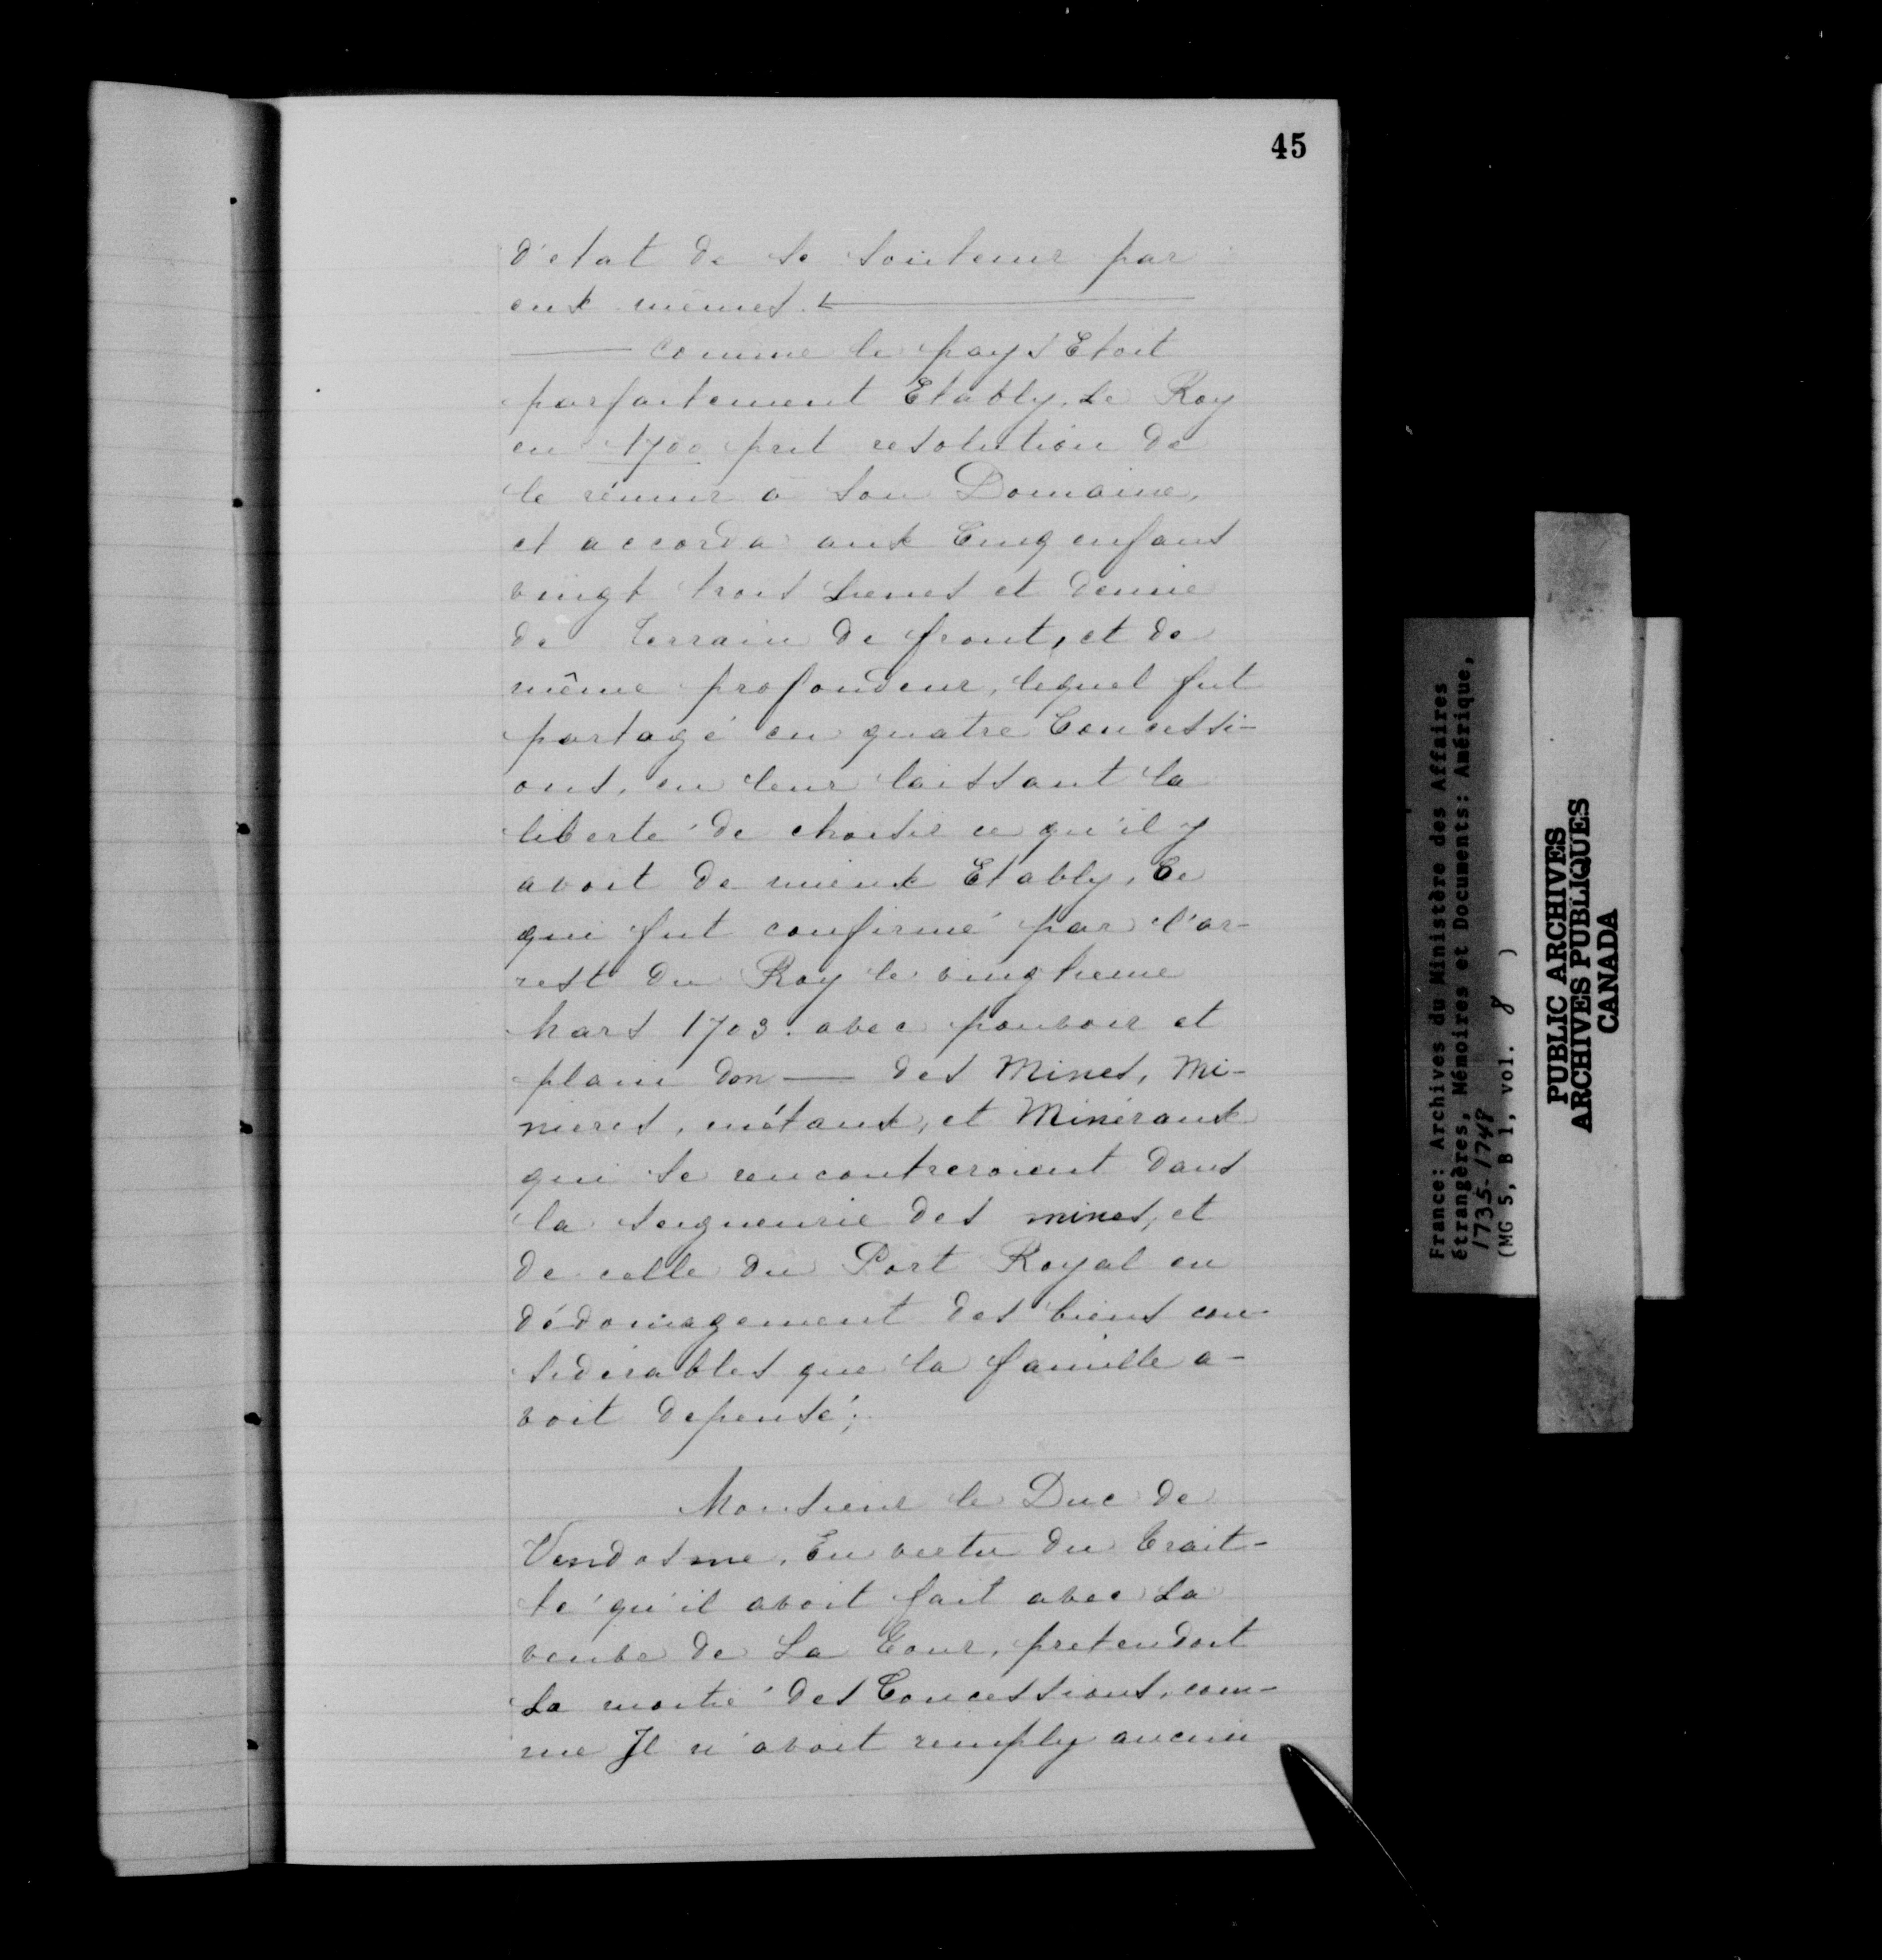 45
d'etat de se soutenir par
eux mêmes.
comme le pays Etoit
parfaitement Etably, Le Roy
en 1700 prit resolution de
le réunir à son Domaine,
et accorda aux Cinq enfans
vingt trois Lieues et demie
de Terrain de front, et de
même profondeur, lequel fut
partagé en quatre Concessi-
ons, en leur laissant la
liberté de choisir ce qu'il y
avoit de mieux Etably, Ce
qui fut confirmé par l'ar-
rest du Roy le vingtieme
Mars 1703. avec pouvoir et
plain don — des Mines, Mi-
nieres, métaux, et Minéraux
qui se rencontreroient dans
la seigneurie des mines, et
de celle du Port Royal en
dédomagement des biens con-
sidérables que la famille a-
voit depensé;
Monsieur le Duc de
Vendosme, En vertu du Trait-
té qu'il avoit fait avec La
veuve de La Tour, pretendoit
La moitié des Concessions, com-
me Il n'avoit remply aucun
France: Archives du Ministère des Affaires
étrangères, Mémoires et Documents: Amérique,
1735-1748
(MG 5, B 1, vol. 8 )
PUBLIC ARCHIVES
ARCHIVES PUBLIQUES
CANADA